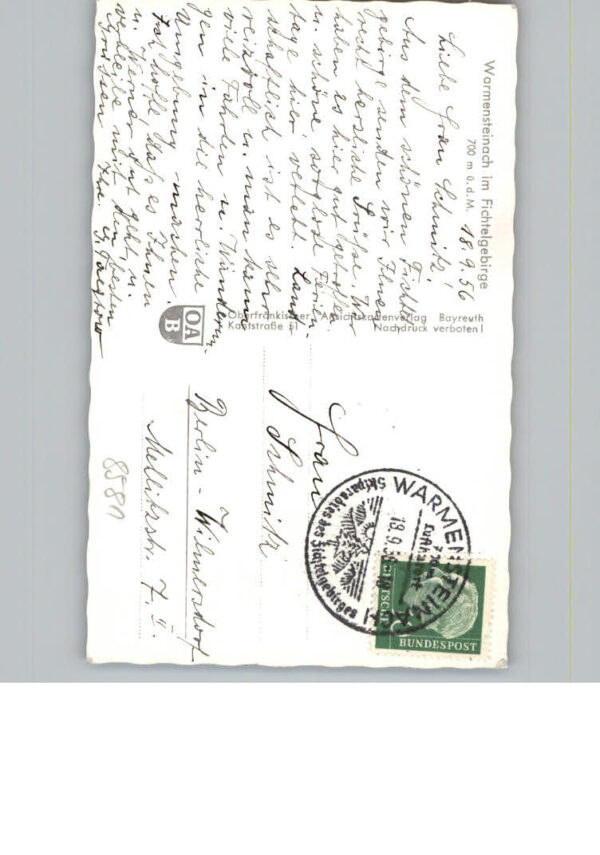 Warmensteinach im Fichtelgebirge
700 m ü.d.M.
18.9.56
Liebe Frau Schmitz!
Aus dem schönen Fichtel-
gebirge senden wir Ihnen
recht herzliche Grüße. Wir
haben es hier gut getroffen
u. schöne sorglose Ferien-
tage hier verlebt. Land-
schaftlich ist es sehr
reizvoll u. man kann
viele Fahrten u. Wanderun-
gen in die herrliche
Umgebung machen.
hoffe, daß es Ihnen
u. Werner gut geht, u.
verbleibe mit den besten
Grüssen Ihre
OA
B
Oberfränkischer Ansichtskartenverlag Bayreuth
Kantstraße 51 Nachdruck verboten!
Frau
Schmitz
Berlin-Wilmersdorf
7, II.
8581
WARMENSTEINACH
18.9.56
Skiparadies des Fichtelgebirges
BUNDESPOST